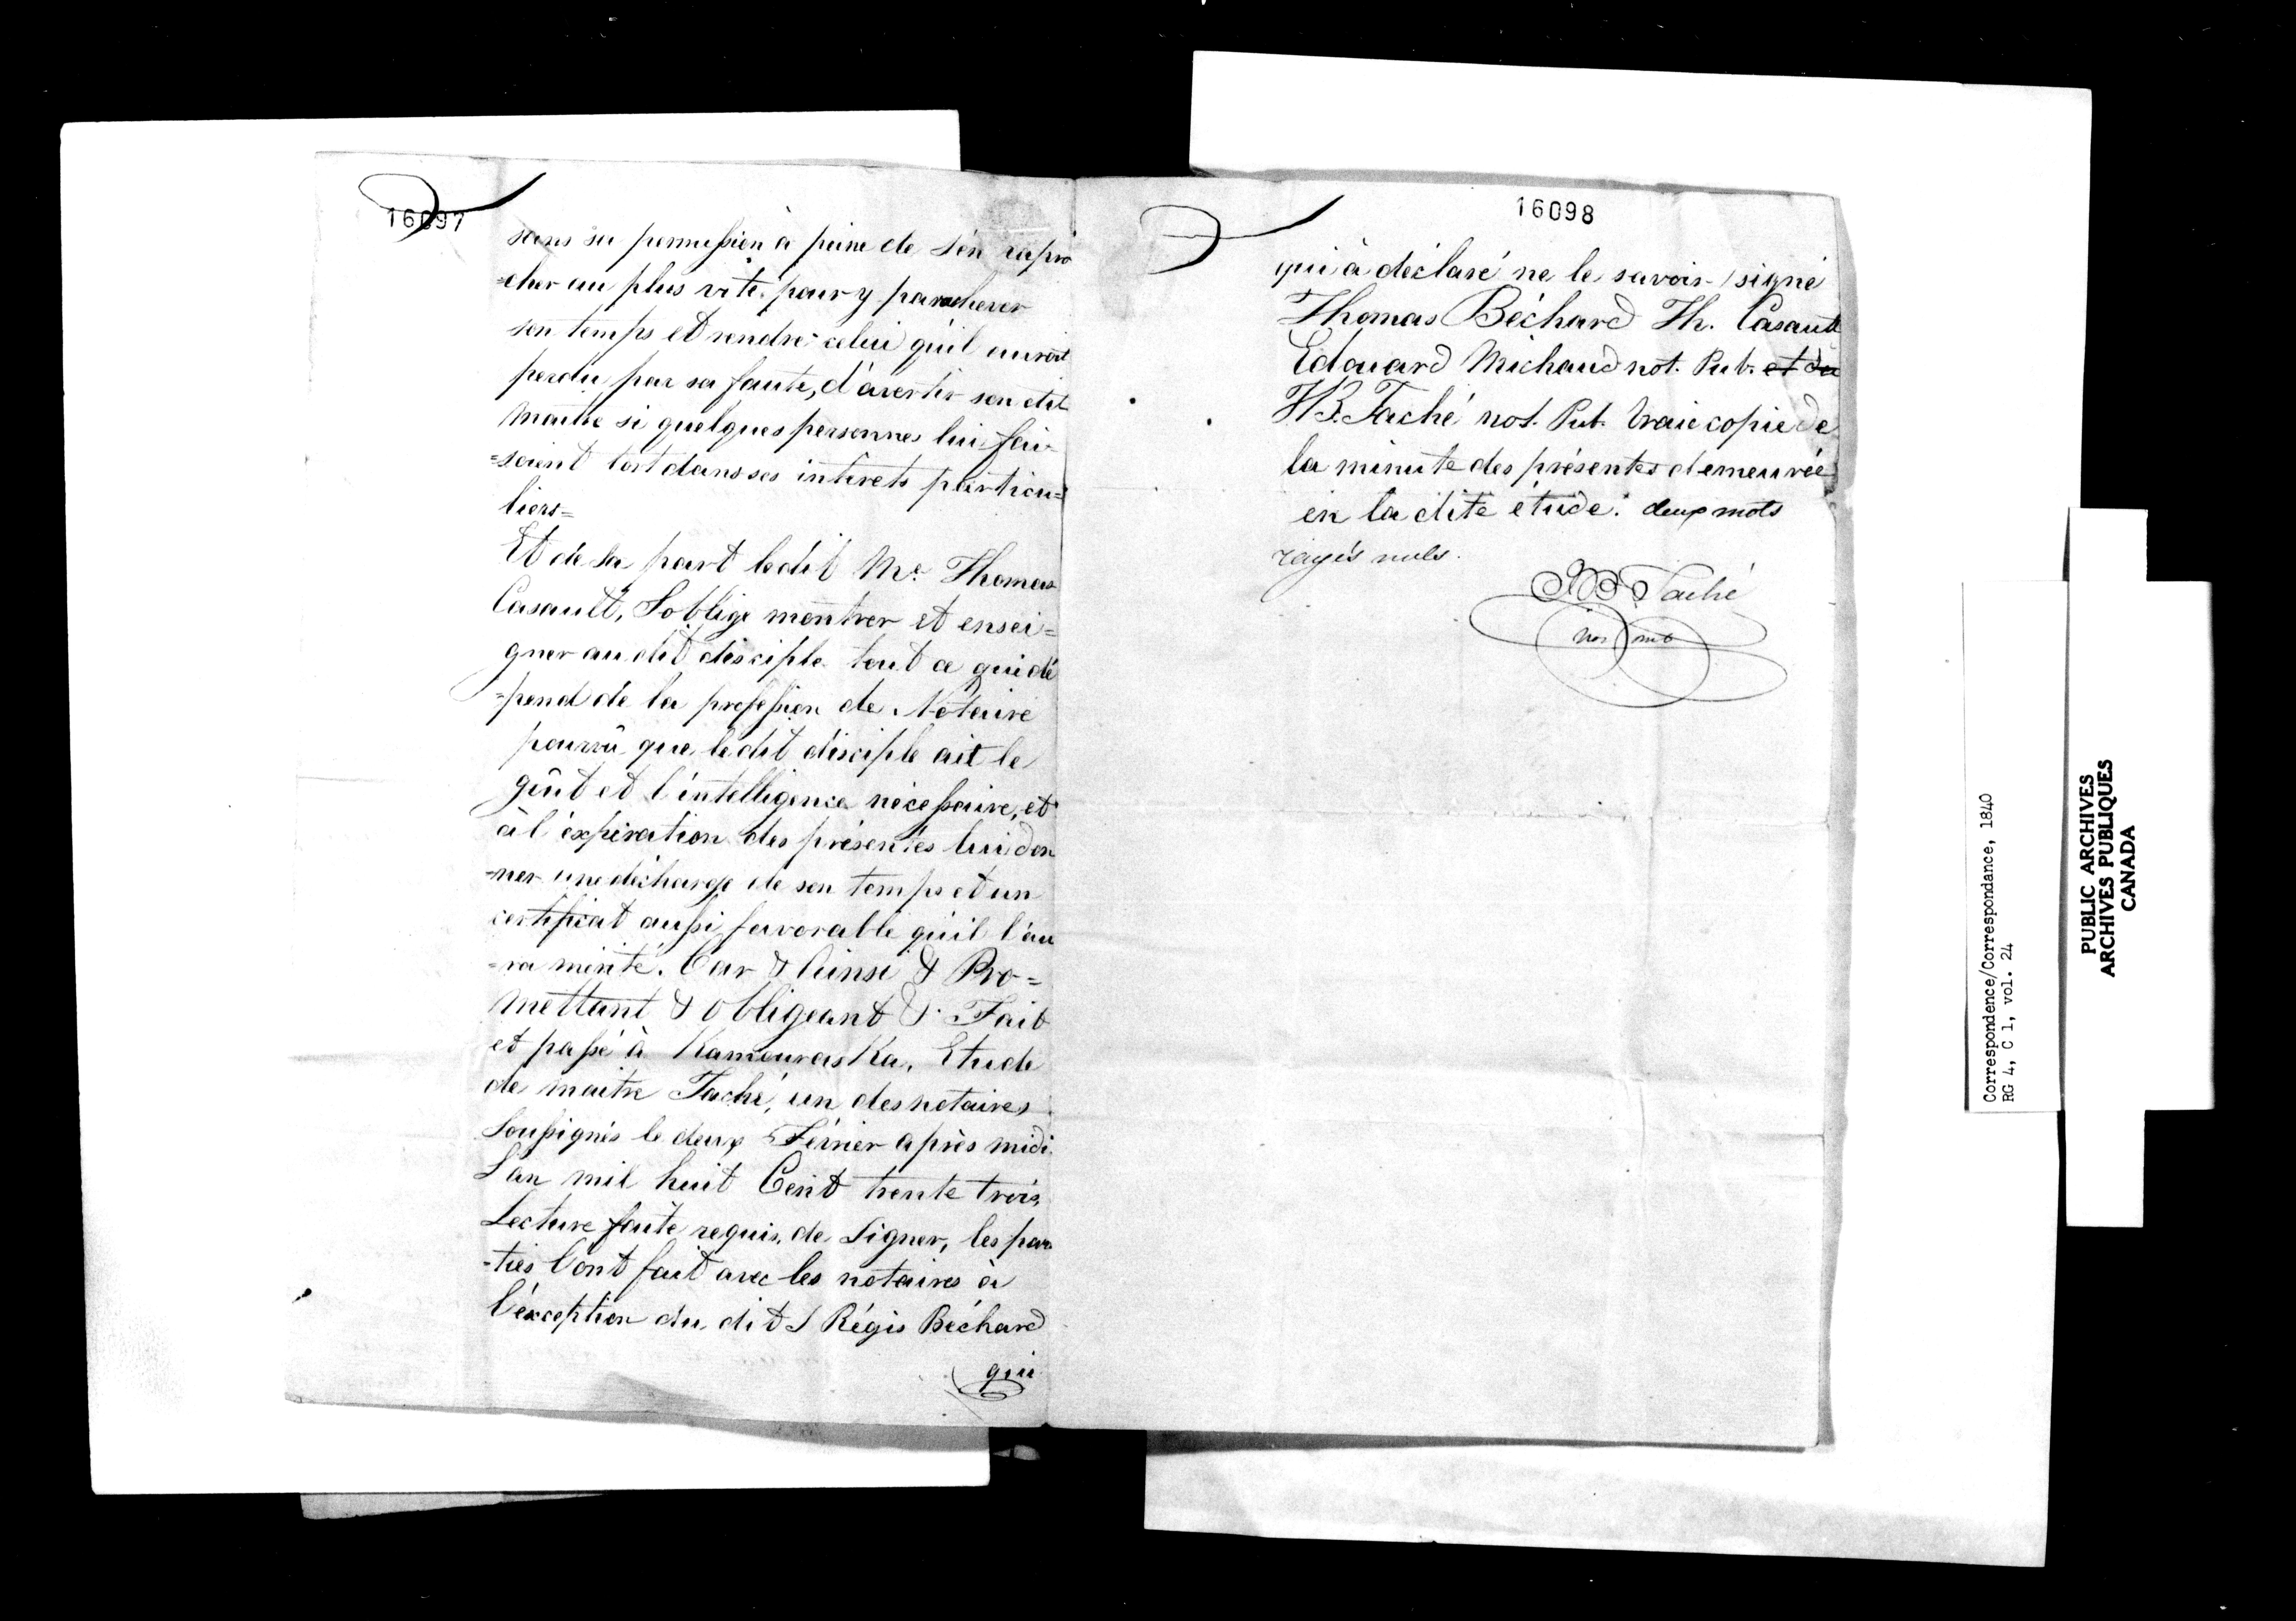 16097
sans sa permission à peine de s'en rapro
=cher au plus vite. pour y parachever
son temps et rendre celui qu'il auroit
perdu par sa faute, d'avertir son dit
Maitre si quelques personnes lui fai-
=soient tort dans ses intérets particu=
liers=
Et de sa part ledit Me. Thomas
Casault, S'oblige montrer et ensei=
gner au dit disciple tout ce qui dé
=pend de la profession de Notaire
pourvû que ledit disciple ait le
goût et l'intelligence nécessaire, et
à l'éxpiration des présentes lui don
=ner une décharge de son temps et un
certificat aussi favorable qu'il l'au
=ra mérité. Car & Ainsi & Pro=
mettant & obligeant &. Fait
et passé à Kamouraska, Etude
de maitre Taché, un des notaires
Soussignés le deux Février après midi.
L'an mil huit Cent trente trois,
Lecture faite requis de Signer, les par
-ties l'ont fait avec les notaires à
l'éxception du dit S Régis Béchard
qui
16098
qui à déclaré ne le savoir / signé
Thomas Béchard Th. Casault
Edouard Michaud not. Pub. et du
JB. Taché not. Pub. Vraie copie de
la minute des présentes demeurée
en la dite étude. deux mots
rayés nuls.
JB Taché
Not Pub
Correspondence/Correspondance, 1840
RG 4, C 1, vol. 24
PUBLIC ARCHIVES
ARCHIVES PUBLIQUES
CANADA